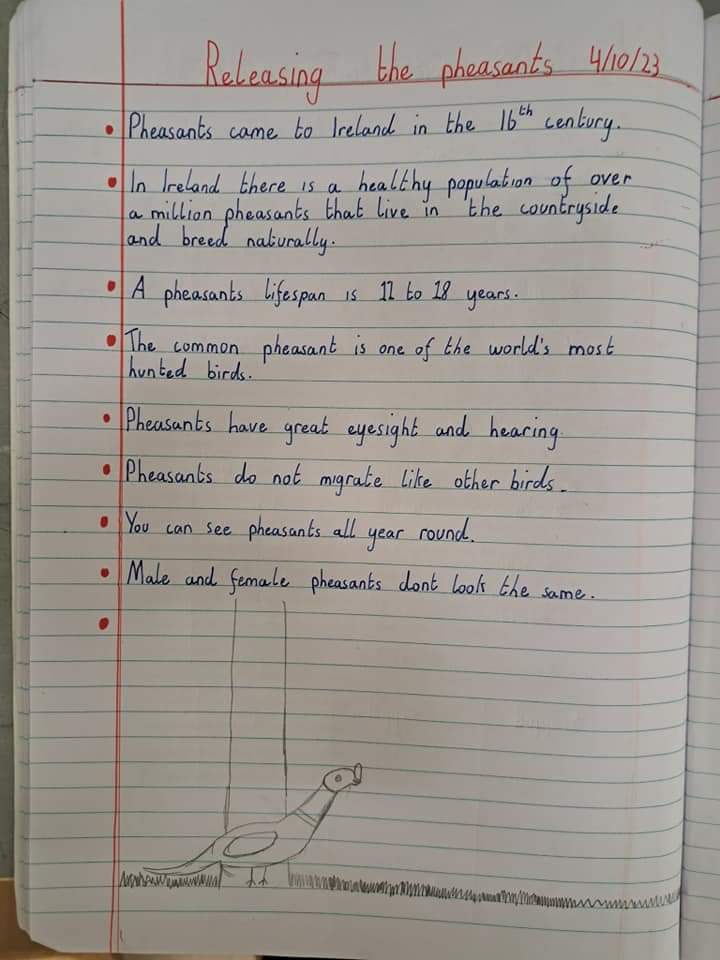 Releasing the pheasants 4/10/23
• Pheasants came to Ireland in the 16th century.
• In Ireland there is a healthy population of over
a million pheasants that live in the countryside
and breed naturally.
• A pheasants lifespan is 11 to 18 years.
• The common pheasant is one of the world's most
hunted birds.
• Pheasants have great eyesight and hearing.
• Pheasants do not migrate like other birds.
• You can see pheasants all year round.
• Male and female pheasants dont look the same.
•